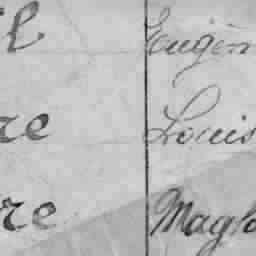 l Eugèn
re Louis
re Maglo